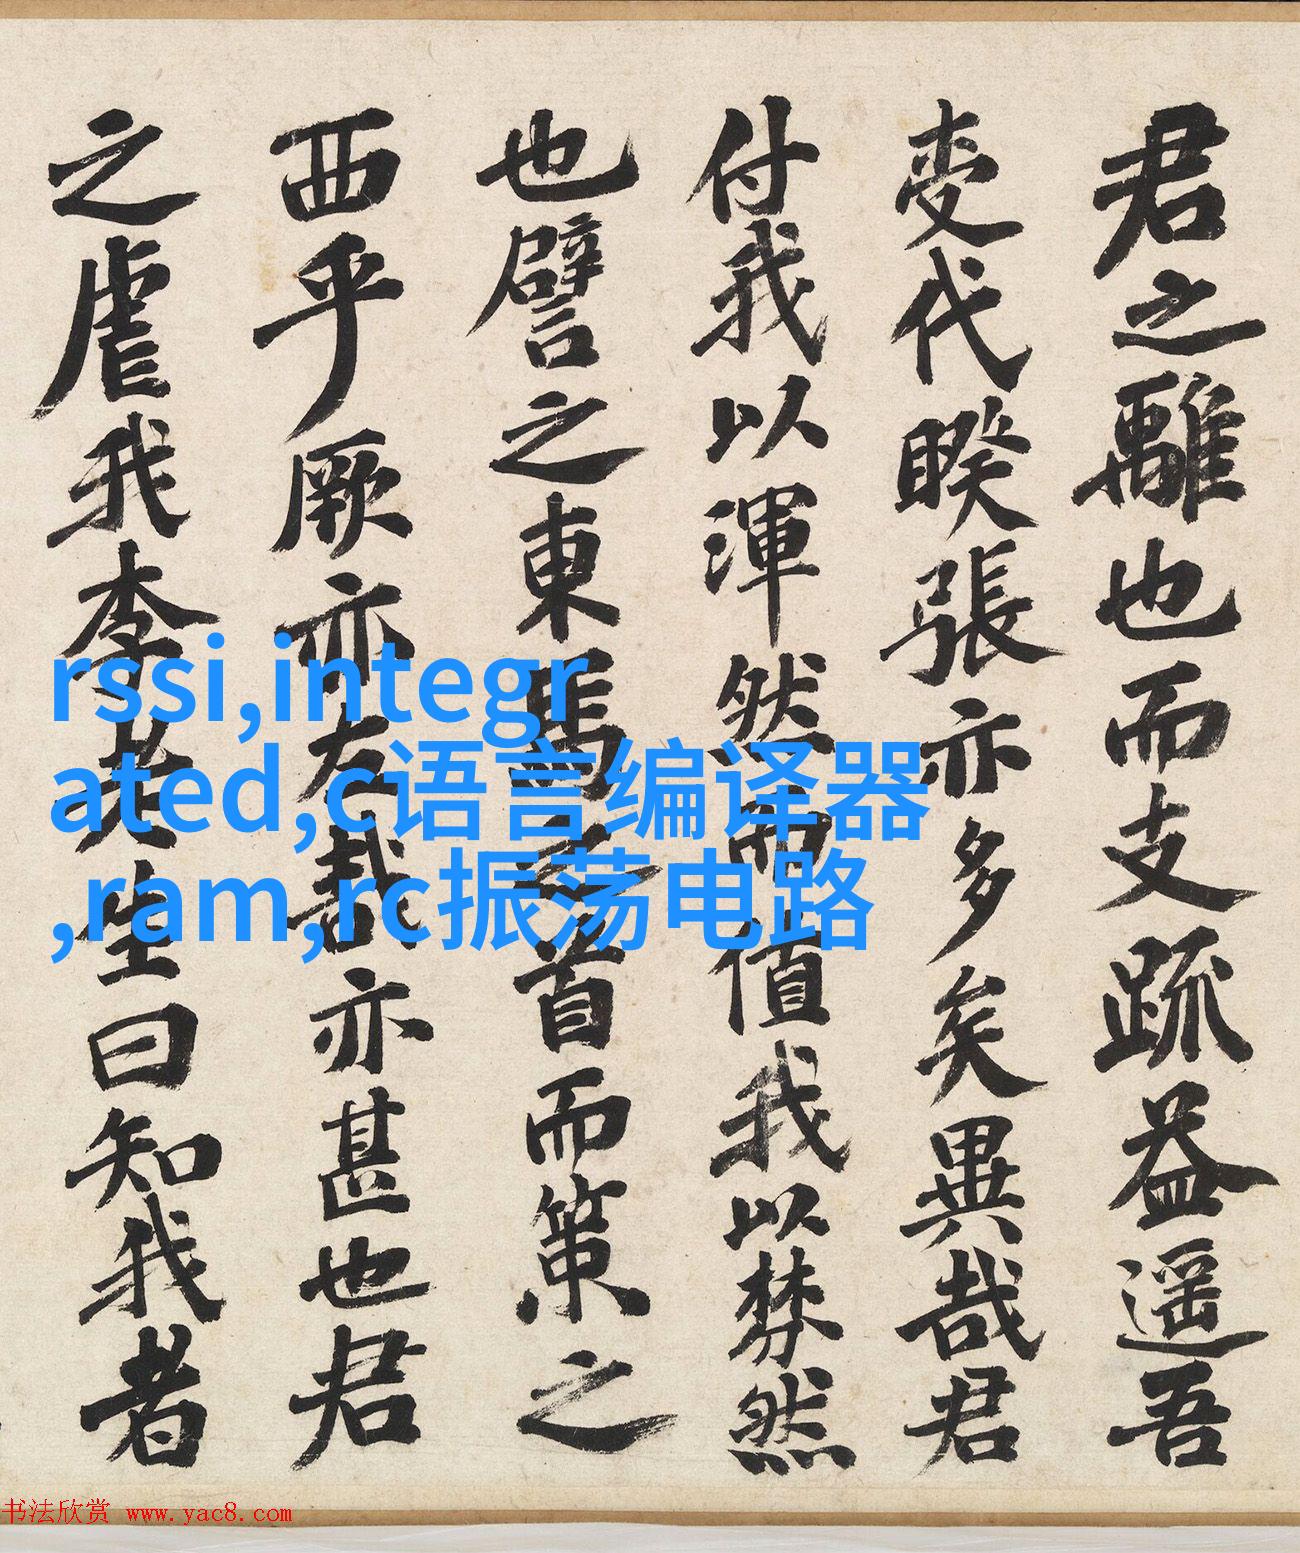 君之離也而支疏益遥吾
代睽張亦多矣異哉君
付我以渾然而值我以棼然
也譬之東馬之首而策之
西乎厥亦左哉亦甚也君
之虐我李老生曰知我者
rssi,integr
ated,c语言编译器
,ram,rc振荡电路
书法欣赏 www.yac8.com